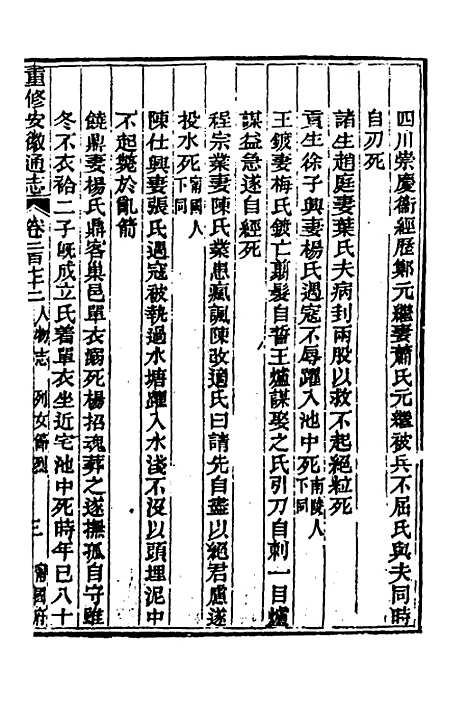 四川崇慶衞經歷鄭元繼妻蕭氏元繼被兵不屈氏與夫同時
自刃死
諸生趙庭妻葉氏夫病刲兩股以救不起絕粒死
貢生徐子興妻楊氏遇寇不辱躍入池中死南陵人下同
王鍍妻梅氏鍍亡剪髮自誓王爐謀娶之氏引刀自刺一目爐
謀益急遂自經死
程宗業妻陳氏業患瘋諷陳改適氏曰請先自盡以絕君慮遂
投水死甯國人下同
陳仕興妻張氏遇寇被執過水塘躍入水淺不沒以頭埋泥中
不起斃於亂箭
饒鼎妻楊氏鼎客巢邑單衣溺死楊招魂葬之遂撫孤自守雖
冬不衣袷二子旣成立氏着單衣坐近宅池中死時年已八十
重修安徽通志 卷二百七十二 人物志 列女節烈 三 甯國府